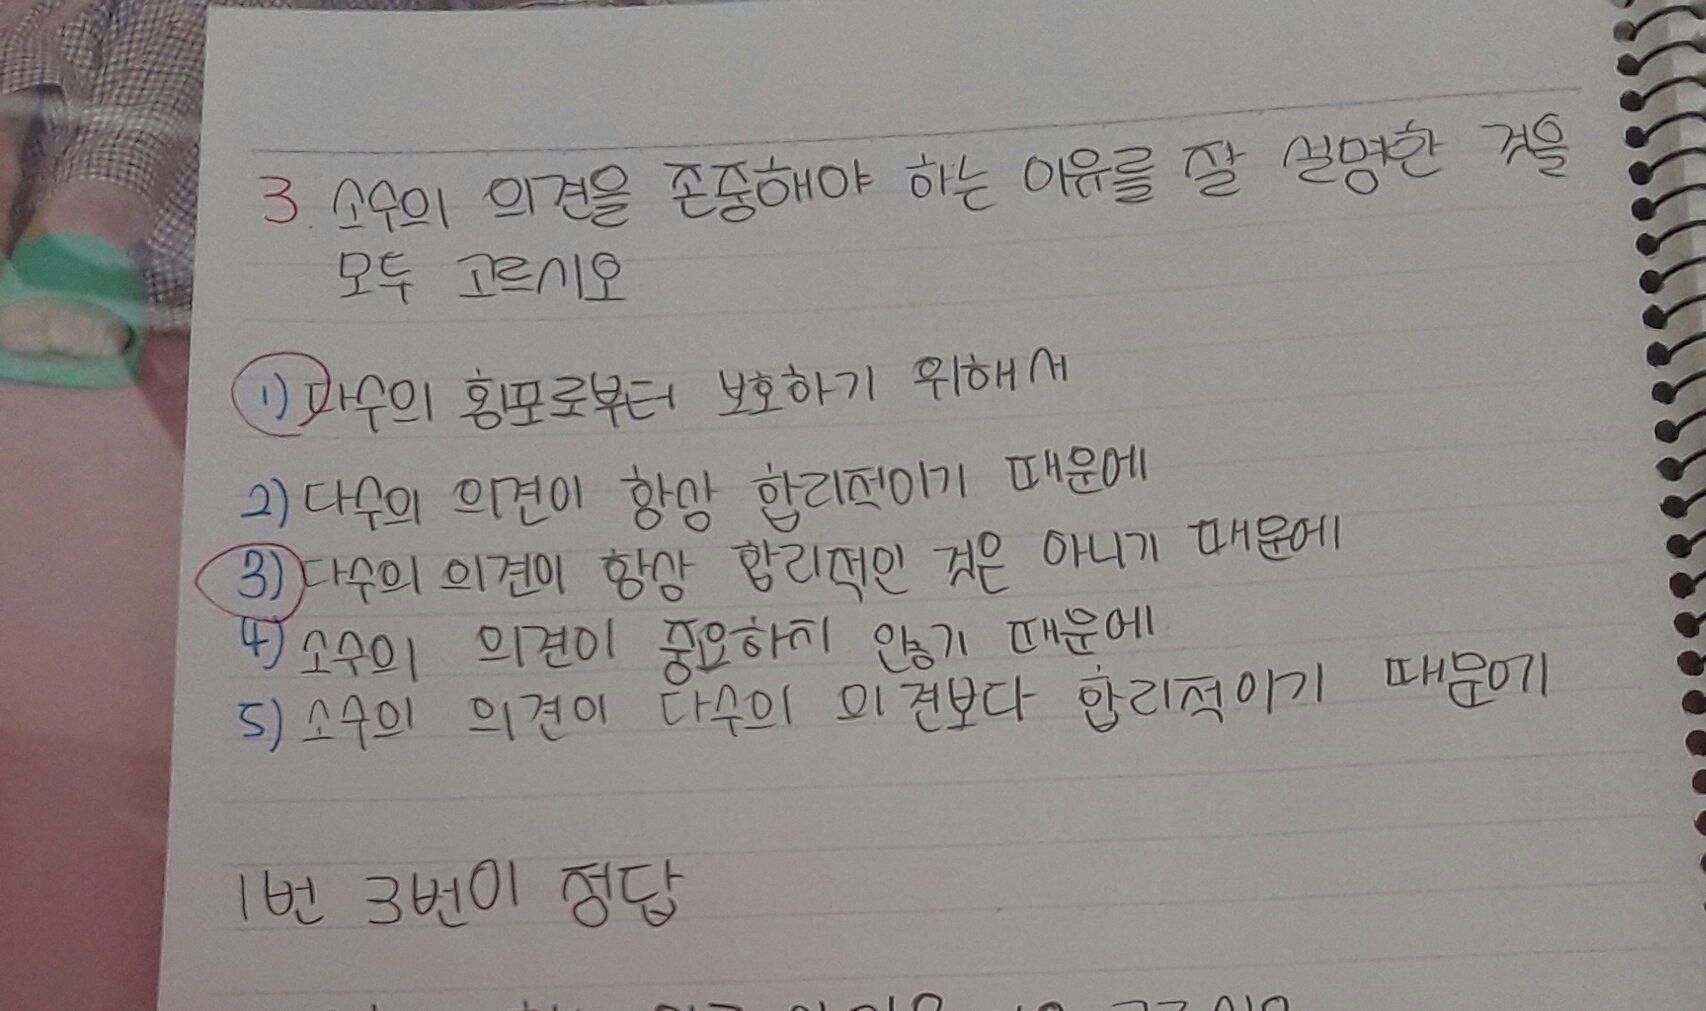 3. 소수의 의견을 존중해야 하는 이유를 잘 설명한 것을
모두 고르시오
1) 다수의 횡포로부터 보호하기 위해서
2) 다수의 의견이 항상 합리적이기 때문에
3) 다수의 의견이 항상 합리적인 것은 아니기 때문에
4) 소수의 의견이 중요하지 않기 때문에
5) 소수의 의견이 다수의 의견보다 합리적이기 때문에
1번 3번이 정답